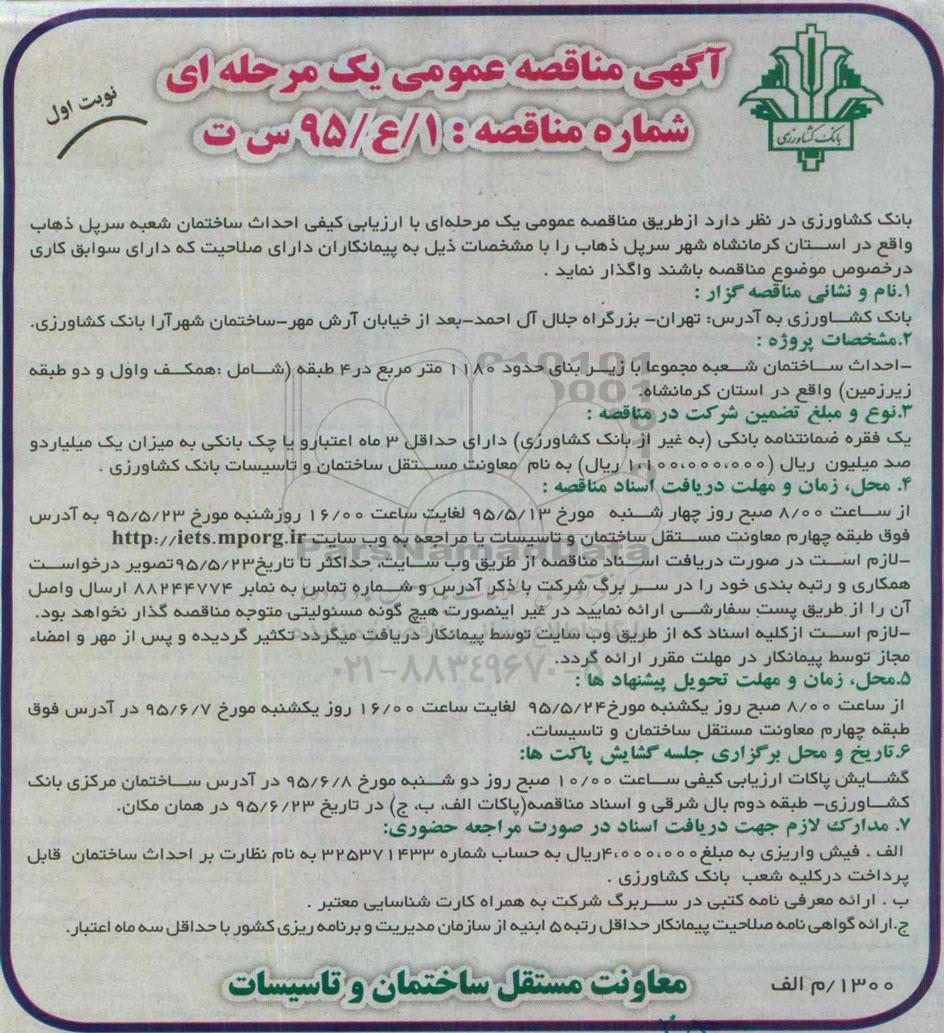 آگهی مناقصه عمومی یک مرحله ای
شماره مناقصه : ۱/ع/۹۵ س ت
نوبت اول
بانک کشاورزی
بانک کشاورزی در نظر دارد ازطریق مناقصه عمومی یک مرحله‌ای با ارزیابی کیفی احداث ساختمان شعبه سرپل ذهاب
واقع در استان کرمانشاه شهر سرپل ذهاب را با مشخصات ذیل به پیمانکاران دارای صلاحیت که دارای سوابق کاری
درخصوص موضوع مناقصه باشند واگذار نماید .
۱.نام و نشانی مناقصه گزار :
بانک کشاورزی به آدرس: تهران- بزرگراه جلال آل احمد-بعد از خیابان آرش مهر-ساختمان شهرآرا بانک کشاورزی.
۲.مشخصات پروژه :
-احداث ساختمان شعبه مجموعا با زیر بنای حدود ۱۱۸۰ متر مربع در۴ طبقه (شامل :همکف واول و دو طبقه
زیرزمین) واقع در استان کرمانشاه.
۳.نوع و مبلغ تضمین شرکت در مناقصه :
یک فقره ضمانتنامه بانکی (به غیر از بانک کشاورزی) دارای حداقل ۳ ماه اعتبارو یا چک بانکی به میزان یک میلیاردو
صد میلیون ریال (۱،۱۰۰،۰۰۰،۰۰۰ ریال) به نام معاونت مستقل ساختمان و تاسیسات بانک کشاورزی .
۴. محل، زمان و مهلت دریافت اسناد مناقصه :
از ساعت ۸/۰۰ صبح روز چهار شنبه مورخ ۹۵/۵/۱۳ لغایت ساعت ۱۶/۰۰ روزشنبه مورخ ۹۵/۵/۲۳ به آدرس
فوق طبقه چهارم معاونت مستقل ساختمان و تاسیسات یا مراجعه به وب سایت http://iets.mporg.ir
-لازم است در صورت دریافت اسناد مناقصه از طریق وب سایت، حداکثر تا تاریخ۹۵/۵/۲۳تصویر درخواست
همکاری و رتبه بندی خود را در سر برگ شرکت با ذکر آدرس و شماره تماس به نمابر ۸۸۲۴۴۷۷۴ ارسال واصل
آن را از طریق پست سفارشی ارائه نمایید در غیر اینصورت هیچ گونه مسئولیتی متوجه مناقصه گذار نخواهد بود.
-لازم است ازکلیه اسناد که از طریق وب سایت توسط پیمانکار دریافت میگردد تکثیر گردیده و پس از مهر و امضاء
مجاز توسط پیمانکار در مهلت مقرر ارائه گردد.
۵.محل، زمان و مهلت تحویل پیشنهاد ها :
از ساعت ۸/۰۰ صبح روز یکشنبه مورخ۹۵/۵/۲۴ لغایت ساعت ۱۶/۰۰ روز یکشنبه مورخ ۹۵/۶/۷ در آدرس فوق
طبقه چهارم معاونت مستقل ساختمان و تاسیسات.
۶.تاریخ و محل برگزاری جلسه گشایش پاکت ها:
گشایش پاکات ارزیابی کیفی ساعت ۱۰/۰۰ صبح روز دو شنبه مورخ ۹۵/۶/۸ در آدرس ساختمان مرکزی بانک
کشاورزی- طبقه دوم بال شرقی و اسناد مناقصه(پاکات الف، ب، ج) در تاریخ ۹۵/۶/۲۳ در همان مکان.
۷. مدارک لازم جهت دریافت اسناد در صورت مراجعه حضوری:
الف . فیش واریزی به مبلغ۴،۰۰۰،۰۰۰ریال به حساب شماره ۳۲۵۳۷۱۴۳۳ به نام نظارت بر احداث ساختمان قابل
پرداخت درکلیه شعب بانک کشاورزی .
ب . ارائه معرفی نامه کتبی در سربرگ شرکت به همراه کارت شناسایی معتبر .
ج.ارائه گواهی نامه صلاحیت پیمانکار حداقل رتبه ۵ ابنیه از سازمان مدیریت و برنامه ریزی کشور با حداقل سه ماه اعتبار.
۱۳۰۰/م الف
معاونت مستقل ساختمان و تاسیسات
ParsNamadData
۰۲۱-۸۸۳۴۹۶۷۰-۸